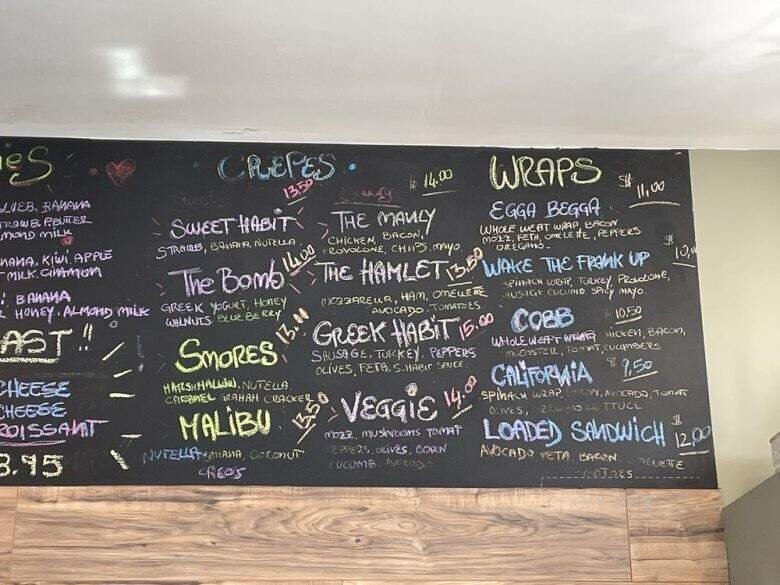 BANANA
MOND MILK
KIWI APPLE
MILK. CINNAMON
BANANA
HONEY, ALMOND MILK
AST!!
CHEESE
CHEESE
ROISSANT
8.45
CREPES
Sweet
13.50
SWEET HABIT
STRAWB, BANANA, NUTELLA.
14.00
The Bomb
GREEK YOGURT, HONEY
WALNUTS, BLUEBERRY
13.00
SMORES
MARSHMALLOW, NUTELLA.
CARAMEL GRAHAM CRACKER
13.50
MALIBU
NUTELLA, BANANA, COCONUT
14.00
THE MANLY
CHICKEN, BACON,
PROVOLONE, CHIPS, MAYO
13.50
THE HAMLET
MOZZARELLA, HAM, OMELETTE
AVOCADO, TOMATOES.
15.00
GREEK HABIT
SAUSAGE, TURKEY, PEPPERS
OLIVES, FETA, S.HABIT SAUCE.
14.00
VEGGIE
MOZZ, MUSHROOMS TOMAT
PEPPERS, OLIVES, CORN
CUCUMB, AVOCADO
WRAPS
11,00
EGGA BEGGA
WHOLE WEAT WRAP, BACON
MOZZ, FETA, OMELETTE, PEPPERS
OREGANO.
10,
WAKE THE FRANK UP
SPINACH WRAP, TURKEY, PROVOLONE,
SAUSAGE CUCUMB, SPICY MAYO
10.50
COBB
WHOLE WEAT WRAP, HICKEN, BACON,
MUENSTER, TOMAT, CUCUMBERS
9,50
CALIFORNIA
SPINACH WRAP, AVOCADO, TOMAT
OLIVES, LETTUCE
$
12,00
LOADED SANDWICH
AVOCADO FETA, BACON